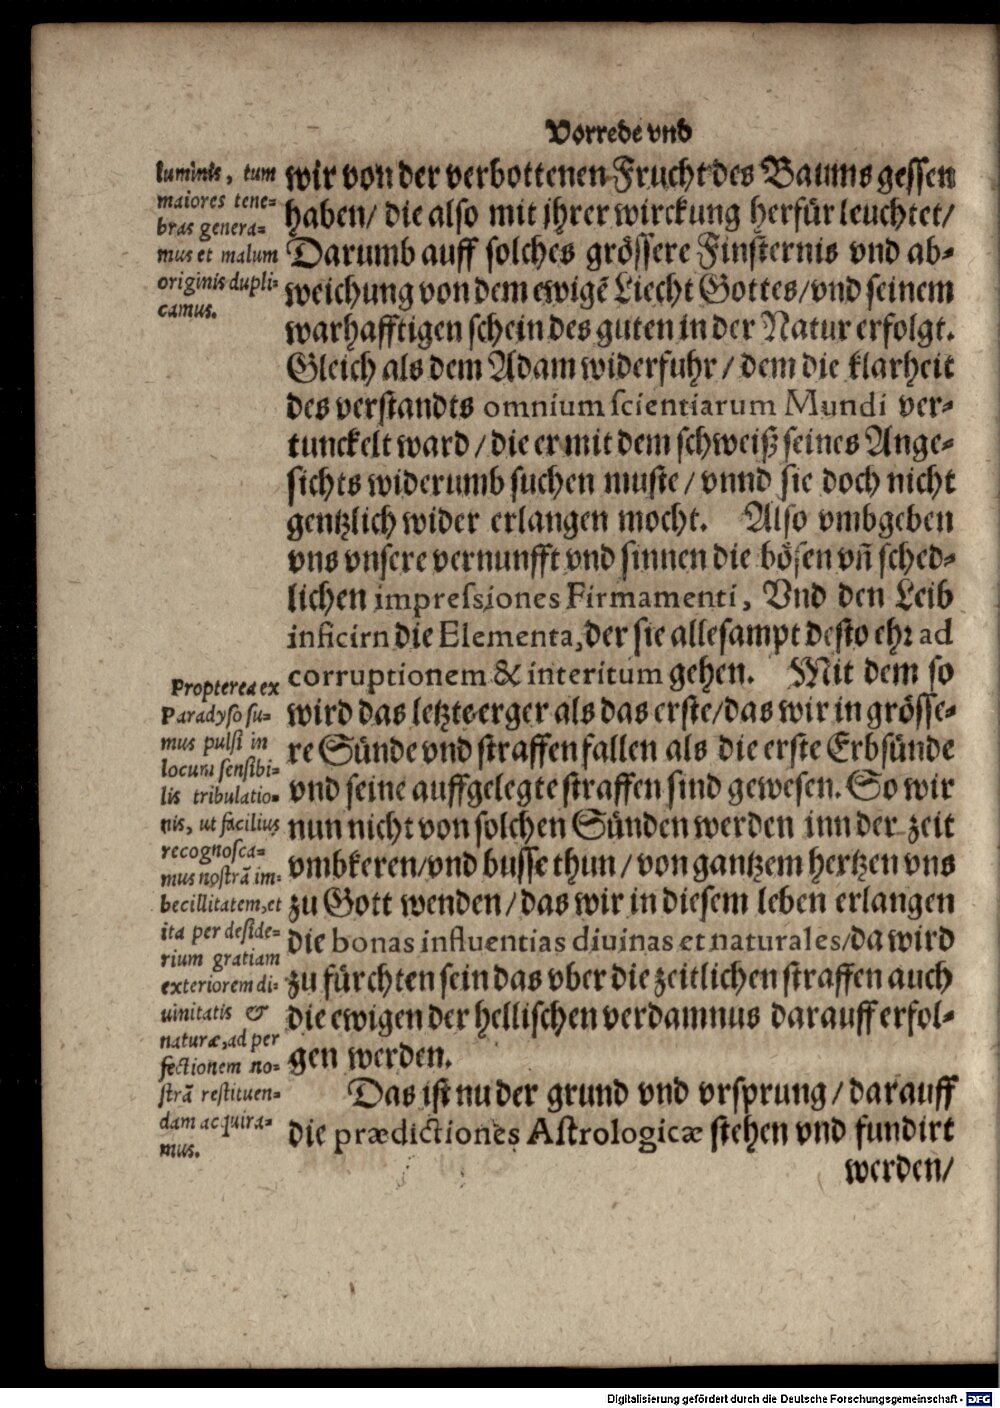 Vorrede vnd
luminis, tum
maiores tene-
bras genera-
mus et malum
originis dupli-
camus.
wir von der verbottenen Frucht des Baums gessen
haben/ die also mit jhrer wirckung herfür leuchtet/
Darumb auff solches grössere Finsternis vnd ab-
weichung von dem ewigē Liecht Gottes/ vnd seinem
warhafftigen schein des guten in der Natur erfolgt.
Gleich als dem Adam widerfuhr/ dem die klarheit
des verstandts omnium scientiarum Mundi ver-
tunckelt ward/ die er mit dem schweiß seines Ange-
sichts widerumb suchen muste/ vnnd sie doch nicht
gentzlich wider erlangen mocht. Also vmbgeben
vns vnsere vernunfft vnd sinnen die bösen vñ sched-
lichen impressiones Firmamenti, Vnd den Leib
inficirn die Elementa, der sie allesampt desto ehr ad
corruptionem & interitum gehen. Mit dem so
wird das letzte erger als das erste/ das wir in grösse-
re Sünde vnd straffen fallen als die erste Erbsünde
vnd seine auffgelegte straffen sind gewesen. So wir
nun nicht von solchen Sünden werden inn der zeit
vmbkeren/ vnd busse thun/ von gantzem hertzen vns
zu Gott wenden/ das wir in diesem leben erlangen
die bonas influentias diuinas et naturales/ da wird
zu fürchten sein das vber die zeitlichen straffen auch
die ewigen der hellischen verdamnus darauff erfol-
gen werden.
Das ist nu der grund vnd vrsprung/ darauff
die prædictiones Astrologicæ stehen vnd fundirt
werden/
Propterea ex
Paradyso su-
mus pulsi in
locum sensibi-
lis tribulatio-
nis, ut facilius
recognosca-
mus nostrā im-
becillitatem, et
ita per deside-
rium gratiam
exteriorem di-
uinitatis &
naturæ, ad per
fectionem no-
strā restituen-
dam acquira-
mus.
Digitalisierung gefördert durch die Deutsche Forschungsgemeinschaft - DFG